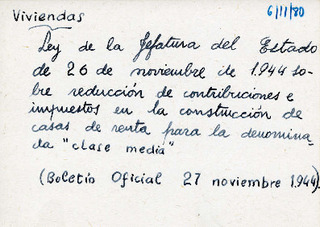 Viviendas
6/11/80
Ley de la Jefatura del Estado
de 26 de noviembre de 1.944 so-
bre reducción de contribuciones e
impuestos en la construcción de
casas de renta para la denomina-
da "clase media"
(Boletín Oficial 27 noviembre 1.944)